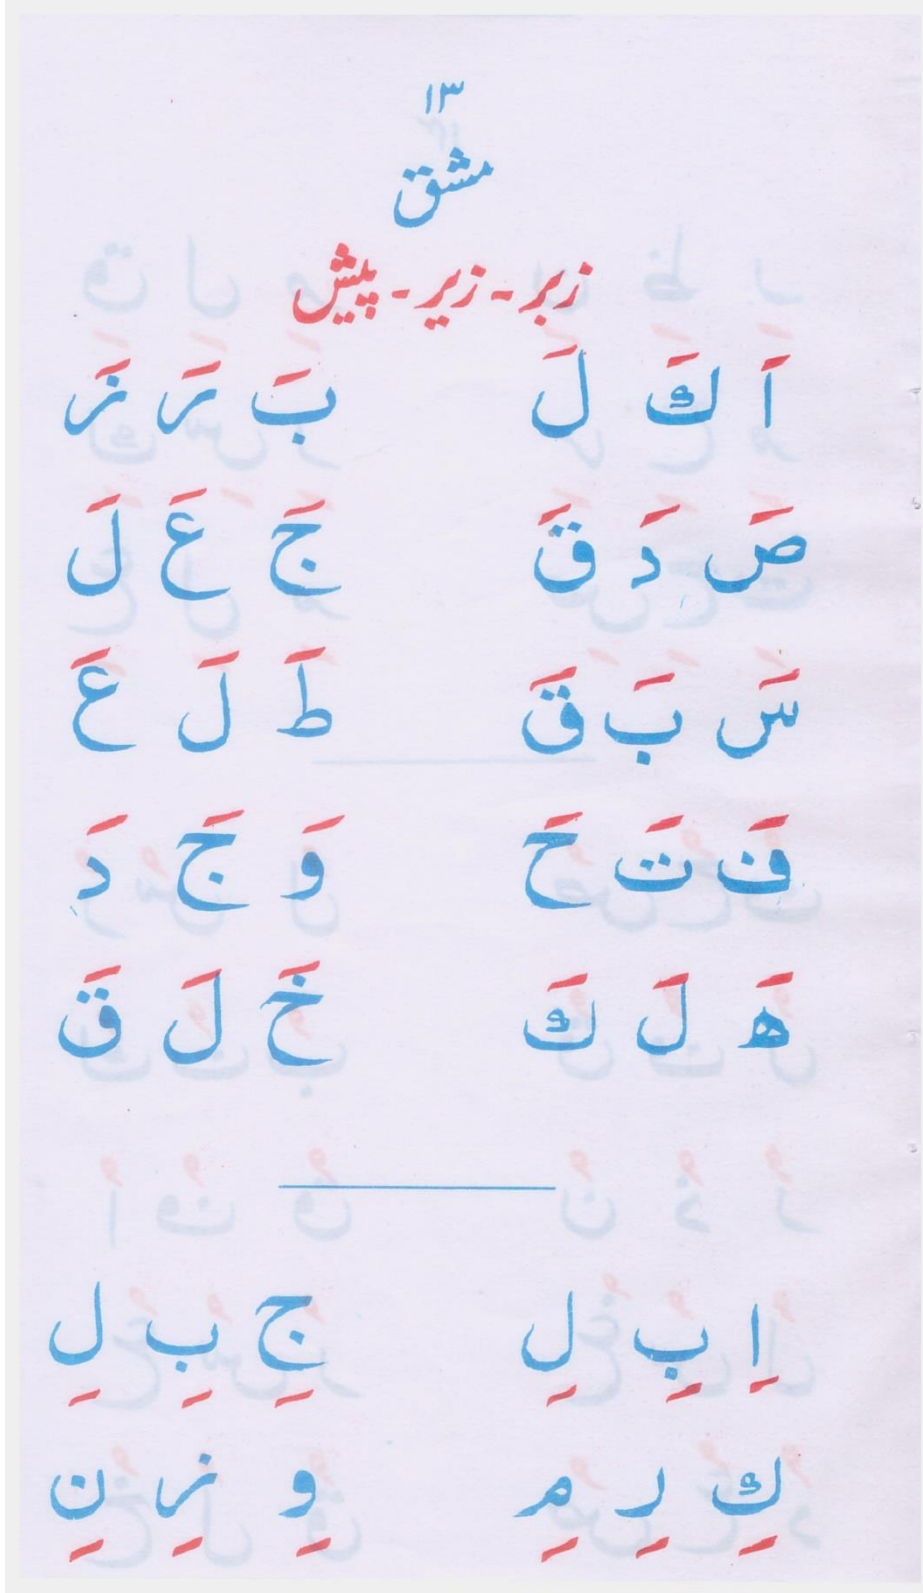 ۱۳
مشق
زبر - زیر - پیش
اَ كَ لَ بَ رَ زَ
صَ دَ قَ جَ عَ لَ
سَ بَ قَ طَ لَ عَ
فَ تَ حَ وَ جَ دَ
هَ لَ كَ خَ لَ قَ
اِ بِ لِ جِ بِ لِ
كِ رِ مِ وِ زِ نِ